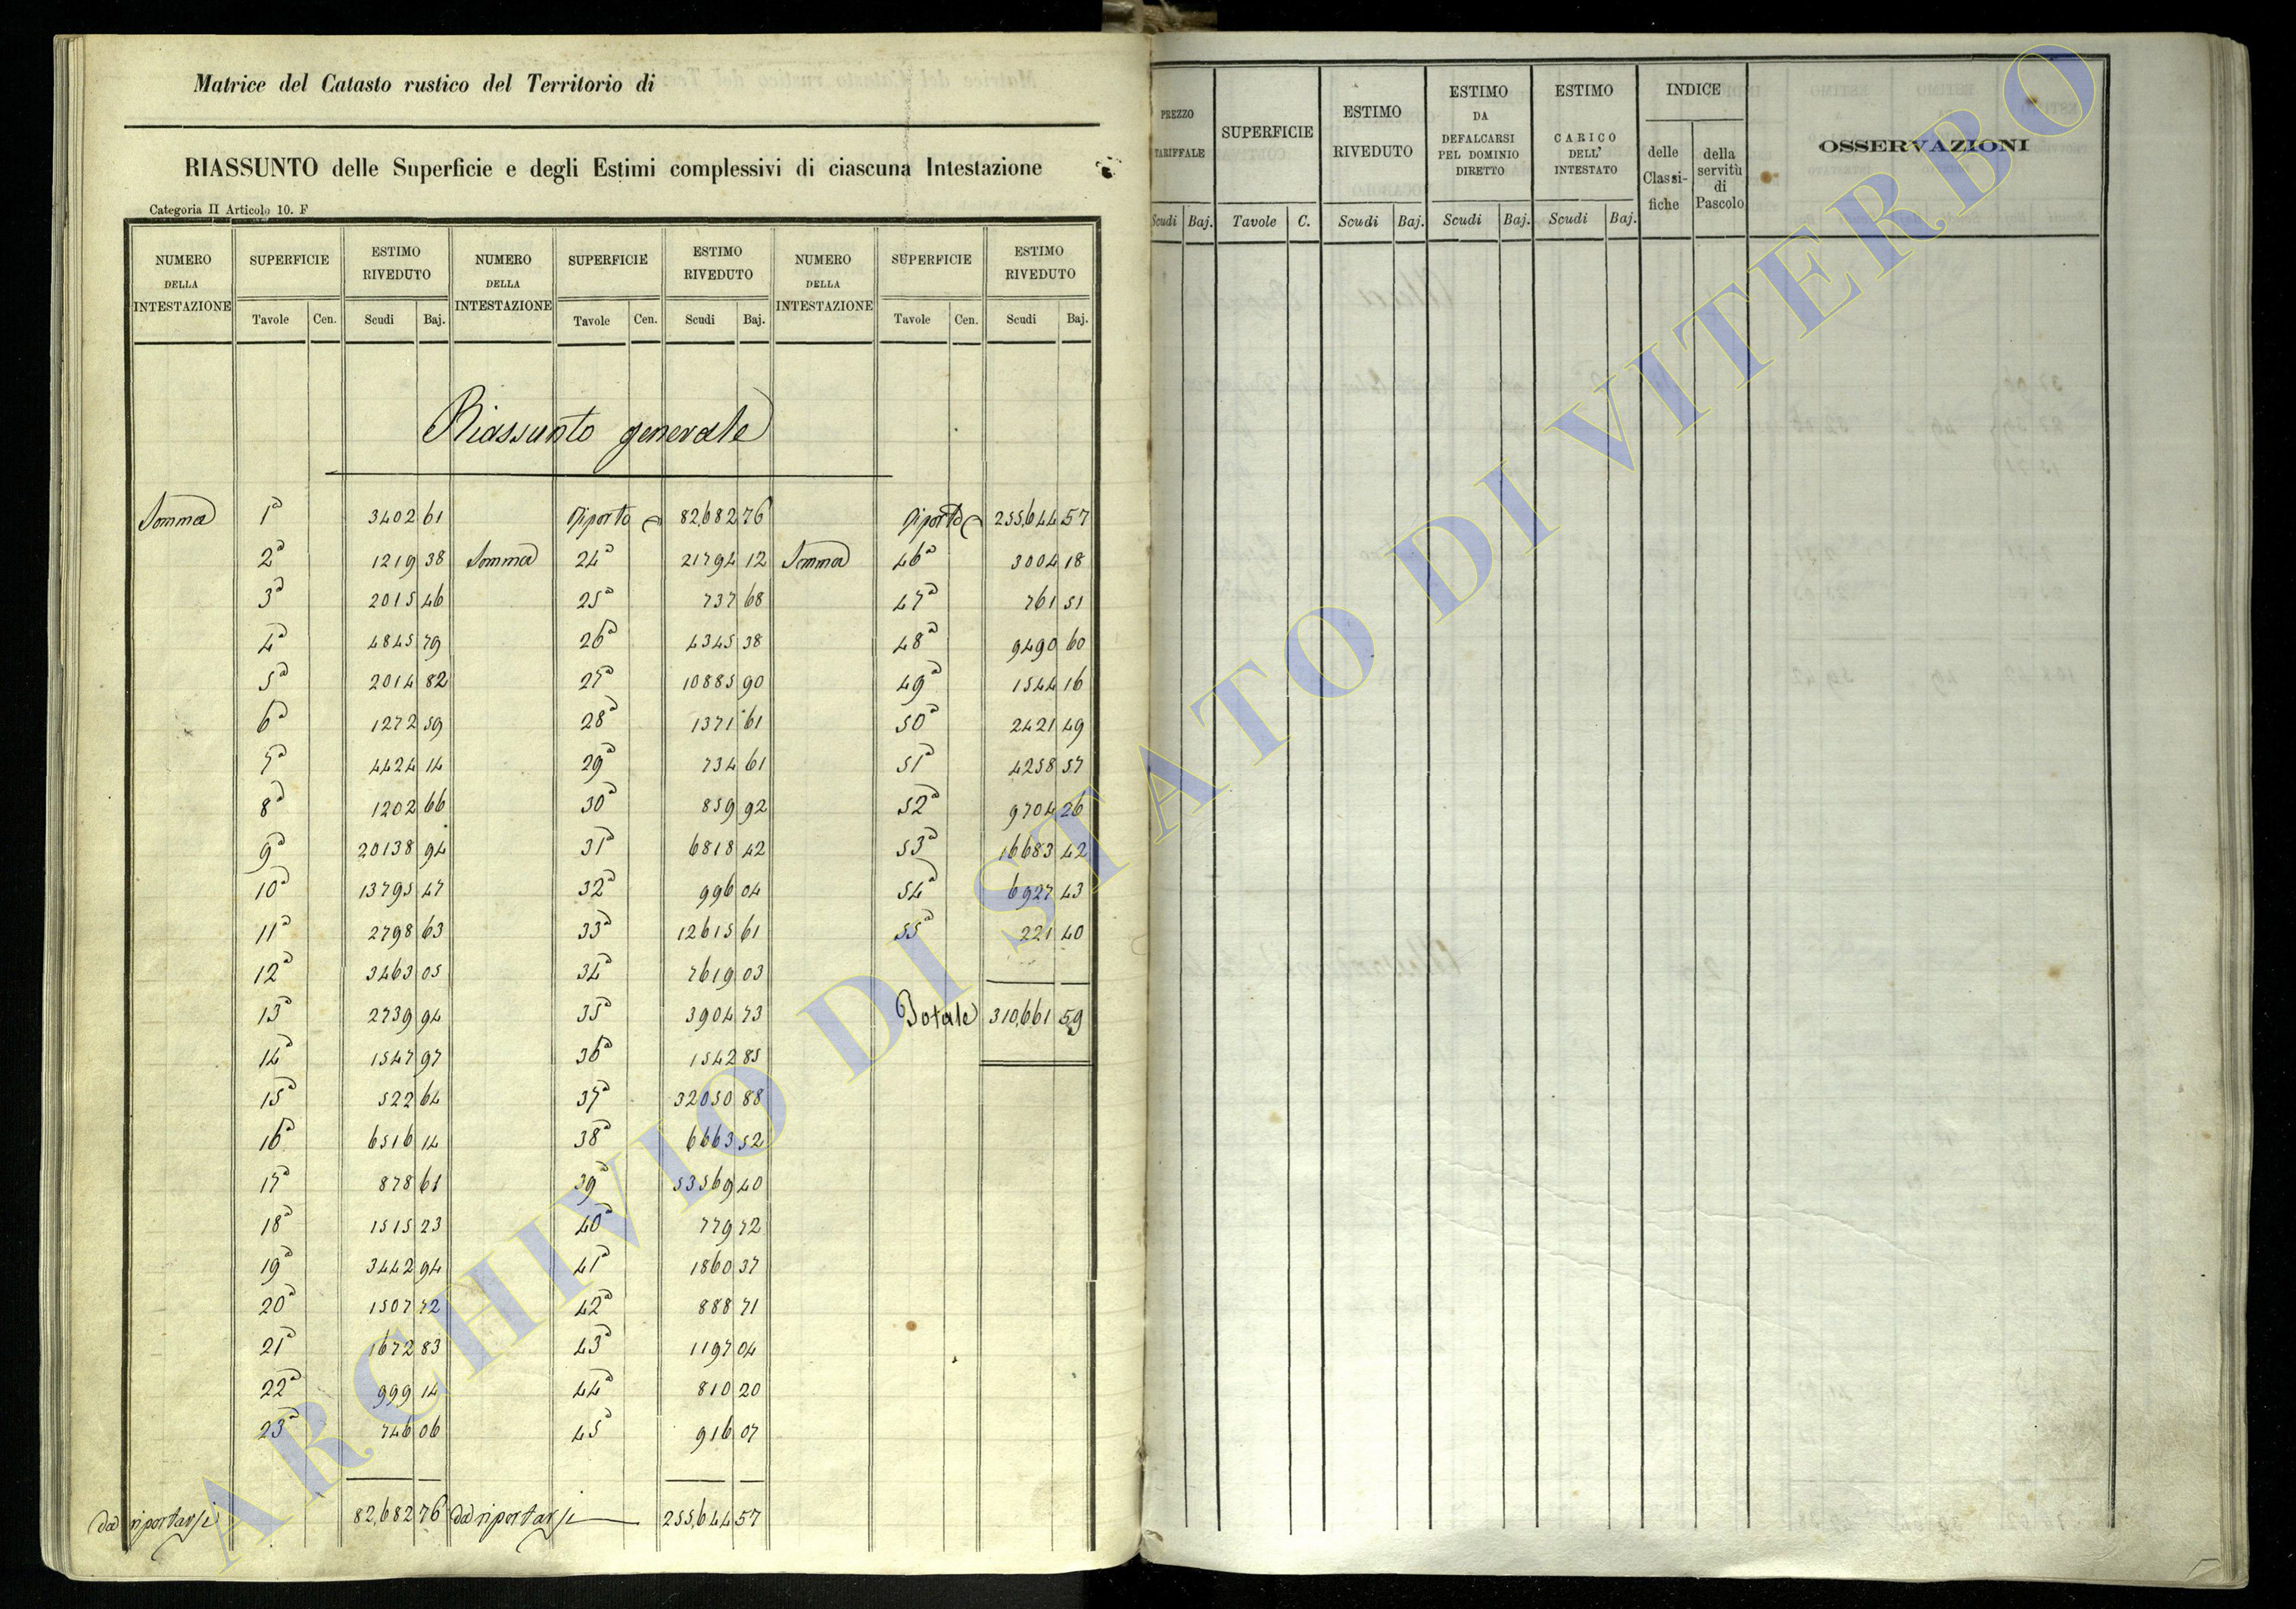 Matrice del Catasto rustico del Territorio di
RIASSUNTO delle Superficie e degli Estimi complessivi di ciascuna Intestazione
Categoria II Articolo 10. F
NUMERO DELLA INTESTAZIONE SUPERFICIE ESTIMO RIVEDUTO NUMERO DELLA INTESTAZIONE SUPERFICIE ESTIMO RIVEDUTO NUMERO DELLA INTESTAZIONE SUPERFICIE ESTIMO RIVEDUTO
Tavole Cen. Scudi Baj. Tavole Cen. Scudi Baj. Tavole Cen. Scudi Baj.
Riassunto generale
Somma 1ª 3402 61 Riporto 82,682 76 Riporto 255,644 57
2ª 1219 38 Somma 24ª 21794 12 Somma 46ª 3004 18
3ª 2015 46 25ª 737 68 47ª 761 51
4ª 4845 79 26ª 4345 38 48ª 9490 60
5ª 2014 82 27ª 10885 90 49ª 1544 16
6ª 1272 59 28ª 1371 61 50ª 2421 49
7ª 4424 14 29ª 734 61 51ª 4258 57
8ª 1202 66 30ª 859 92 52ª 9704 26
9ª 20138 94 31ª 6818 42 53ª 16683 42
10ª 13795 47 32ª 996 04 54ª 6927 43
11ª 2798 63 33ª 12615 61 55ª 221 40
12ª 3463 05 34ª 7619 03
13ª 2739 94 35ª 3904 73 Totale 310,661 59
14ª 1547 97 36ª 1542 85
15ª 522 64 37ª 32050 88
16ª 6516 14 38ª 6663 52
17ª 878 61 39ª 53569 40
18ª 1515 23 40ª 779 72
19ª 3442 94 41ª 1860 37
20ª 1507 72 42ª 888 71
21ª 1672 83 43ª 1197 04
22ª 999 14 44ª 810 20
23ª 746 06 45ª 916 07
da riportarsi 82,682 76 da riportarsi 255,644 57
PREZZO TARIFFALE SUPERFICIE ESTIMO RIVEDUTO ESTIMO DA DEFALCARSI PEL DOMINIO DIRETTO ESTIMO CARICO DELL' INTESTATO INDICE OSSERVAZIONI
delle Classifiche della servitù di Pascolo
Scudi Baj. Tavole C. Scudi Baj. Scudi Baj. Scudi Baj.
ARCHIVIO DI STATO DI VITERBO